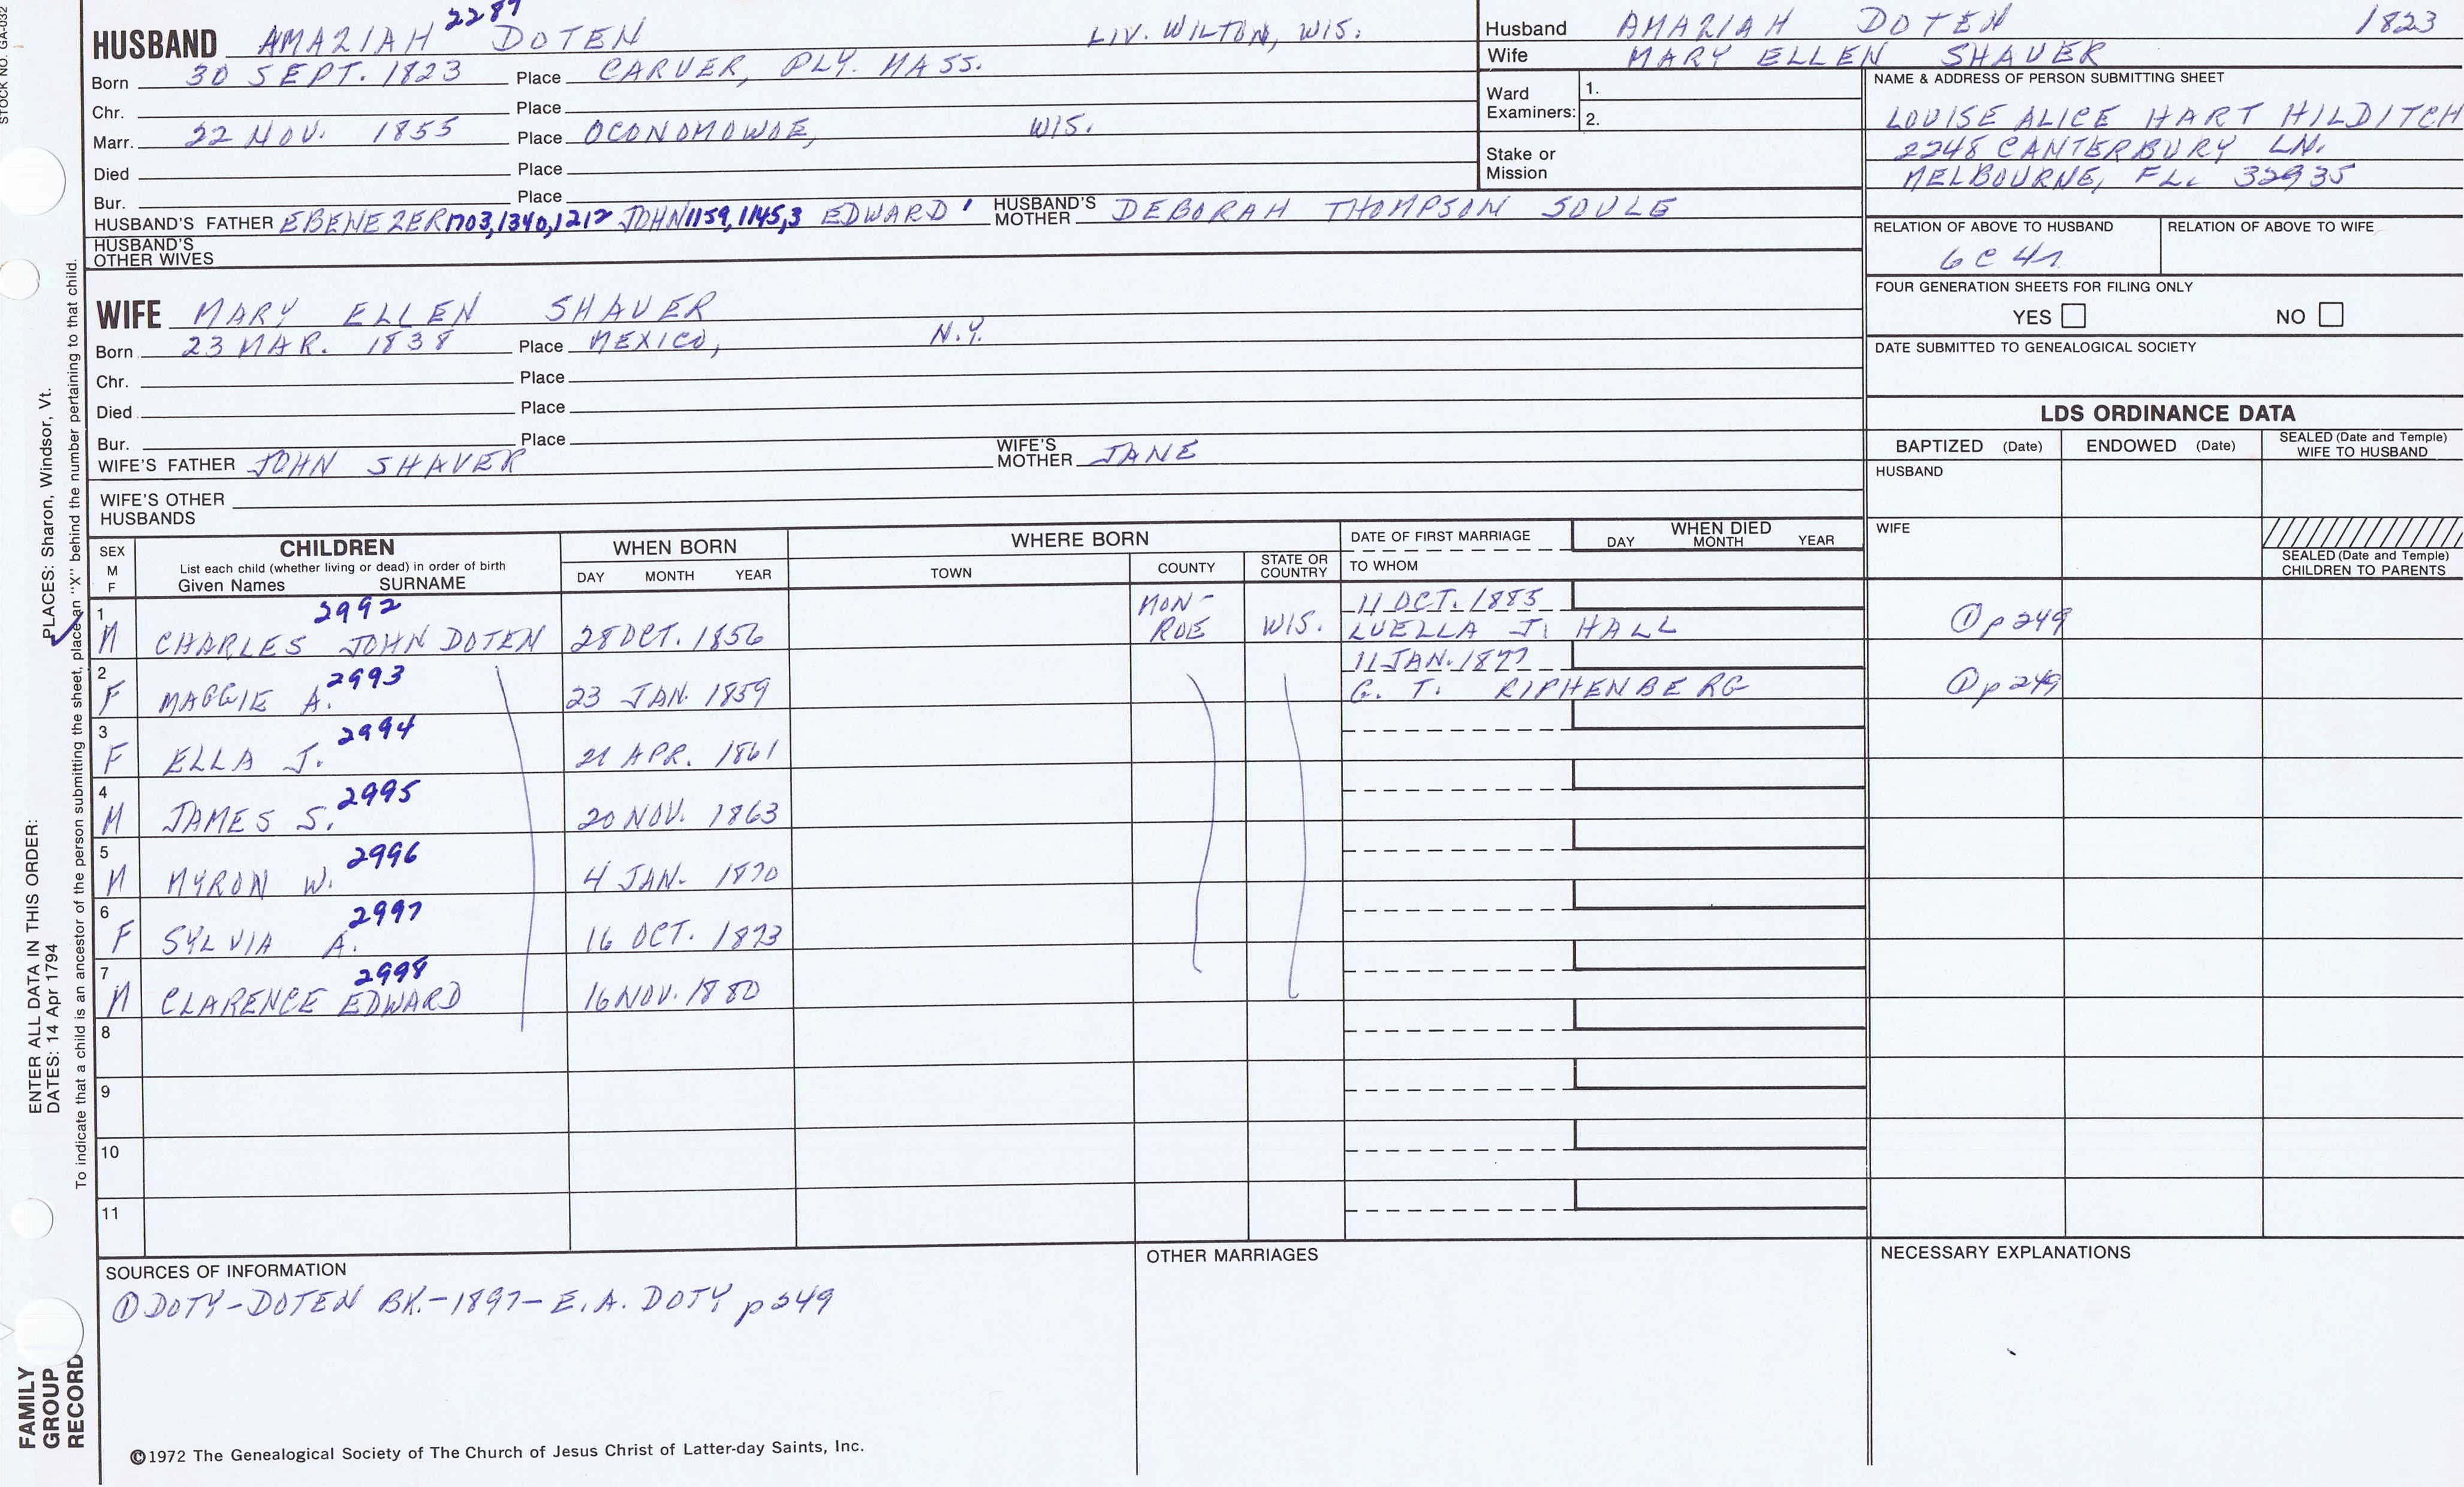 STOCK NO. GA-032
HUSBAND AMAZIAH 2287 DOTEN LIV. WILTON, WIS.
Born 30 SEPT. 1823 Place CARVER, PLY. MASS.
Chr. Place
Marr. 22 NOV. 1855 Place OCONOMOWOE, WIS.
Died Place
Bur. Place
HUSBAND'S FATHER EBENEZER 1703,1340,1212 JOHN 1159,1145,3 EDWARD ' HUSBAND'S MOTHER DEBORAH THOMPSON SOULE
HUSBAND'S OTHER WIVES
Husband AMAZIAH DOTEN 1823
Wife MARY ELLEN SHAVER
Ward Examiners: 1.
2.
Stake or Mission
NAME & ADDRESS OF PERSON SUBMITTING SHEET
LOUISE ALICE HART HILDITCH
2248 CANTERBURY LN.
MELBOURNE, FL. 32935
RELATION OF ABOVE TO HUSBAND RELATION OF ABOVE TO WIFE
6C4r
FOUR GENERATION SHEETS FOR FILING ONLY
YES NO
DATE SUBMITTED TO GENEALOGICAL SOCIETY
WIFE MARY ELLEN SHAVER
Born 23 MAR. 1838 Place MEXICO, N.Y.
Chr. Place
Died Place
Bur. Place
WIFE'S FATHER JOHN SHAVER WIFE'S MOTHER JANE
WIFE'S OTHER HUSBANDS
LDS ORDINANCE DATA
BAPTIZED (Date) ENDOWED (Date) SEALED (Date and Temple) WIFE TO HUSBAND
HUSBAND
WIFE
SEALED (Date and Temple) CHILDREN TO PARENTS
SEX M F CHILDREN WHEN BORN WHERE BORN DATE OF FIRST MARRIAGE WHEN DIED
List each child (whether living or dead) in order of birth
Given Names SURNAME DAY MONTH YEAR TOWN COUNTY STATE OR COUNTRY TO WHOM DAY MONTH YEAR
1 M CHARLES JOHN DOTEN 2992 28 OCT. 1856 MON-ROE WIS. 11 OCT. 1885 LUELLA J. HALL ① p249
2 F MAGGIE A. 2993 23 JAN. 1859 11 JAN. 1877 G. T. RIPHENBERG ① p249
3 F ELLA J. 2994 21 APR. 1861
4 M JAMES S. 2995 20 NOV. 1863
5 M MYRON W. 2996 4 JAN. 1870
6 F SYLVIA A. 2997 16 OCT. 1873
7 M CLARENCE EDWARD 2998 16 NOV. 1880
8
9
10
11
SOURCES OF INFORMATION
① DOTY-DOTEN BK.-1897-E.A. DOTY p249
OTHER MARRIAGES
NECESSARY EXPLANATIONS
©1972 The Genealogical Society of The Church of Jesus Christ of Latter-day Saints, Inc.
FAMILY GROUP RECORD
ENTER ALL DATA IN THIS ORDER:
DATES: 14 Apr 1794
PLACES: Sharon, Windsor, Vt.
To indicate that a child is an ancestor of the person submitting the sheet, place an "X" behind the number pertaining to that child.